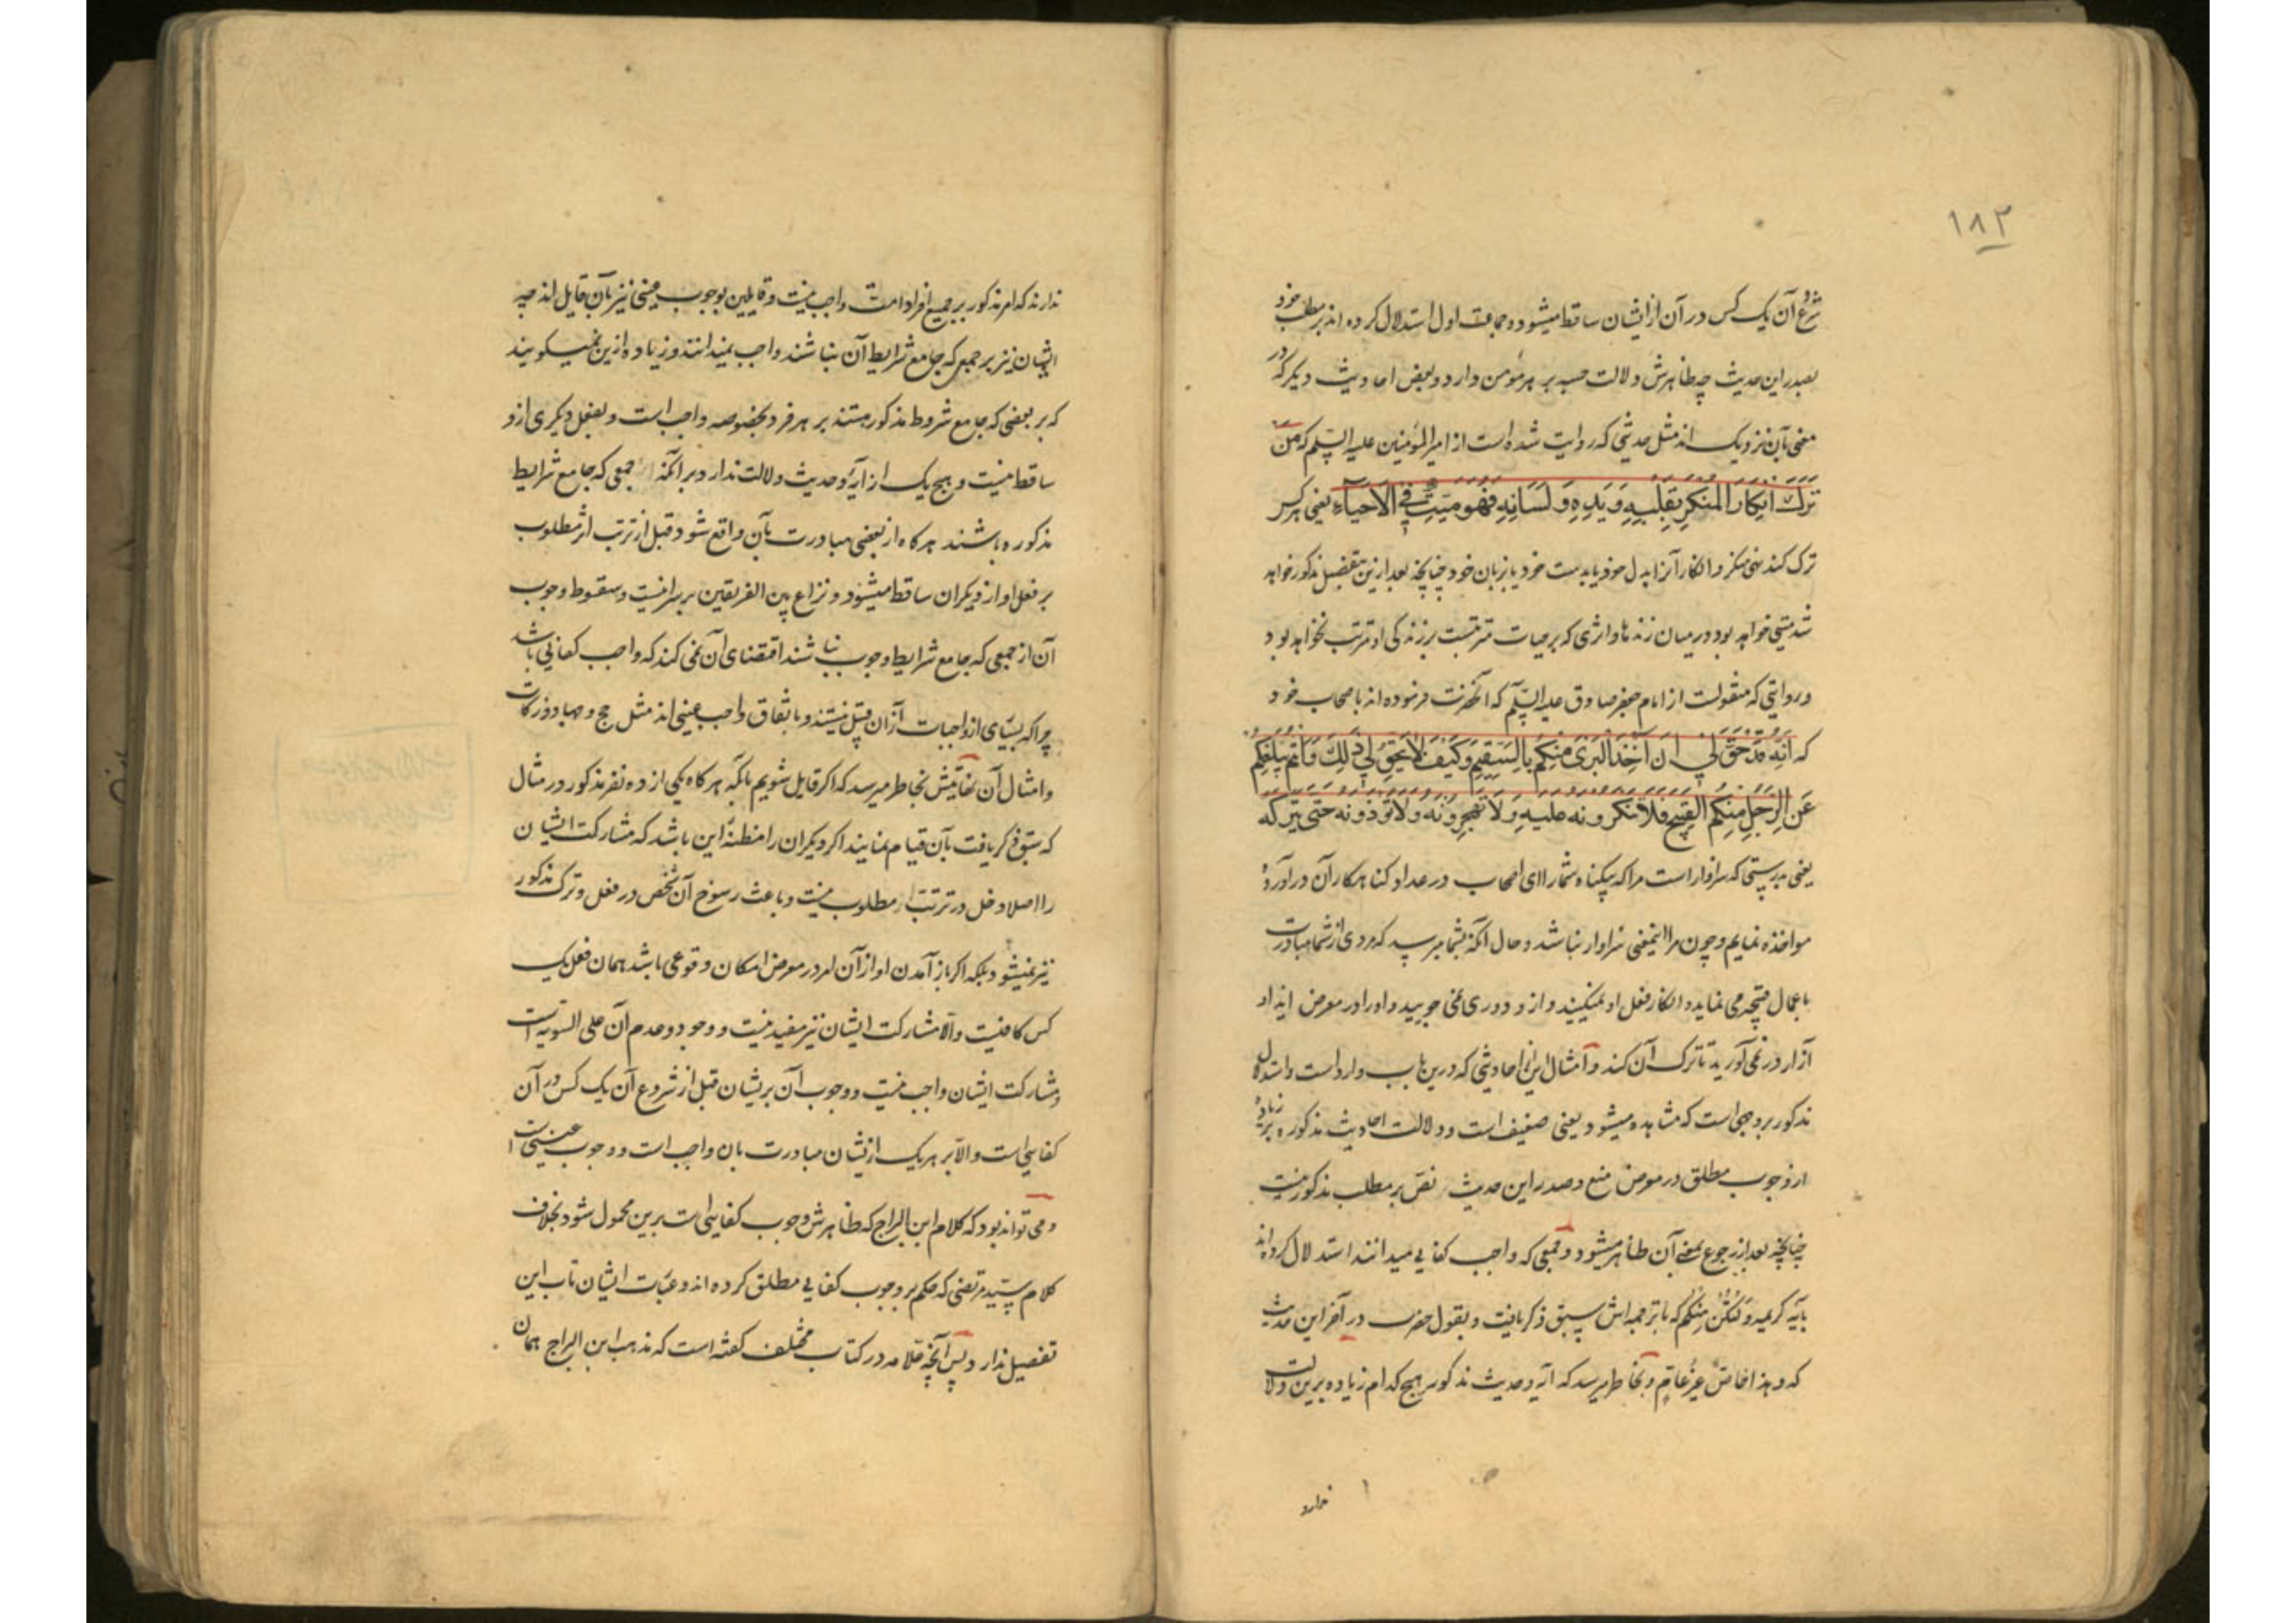 ۱۸۳
شروع آن یک کس در آن از ایشان ساقط میشود و جماعت اول استدلال کرده اند بر مطلب خود
بصدر این حدیث چه ظاهرش دلالت حسبه بر هر مؤمن دارد و بعض احادیث دیگر که در
معنی بآن نزدیک اند مثل حدیثی که روایت شده است از امیر المؤمنین علیه السّلم که من
تَرَكَ اِنْكَارَ المُنْكَرِ بِقَلْبِهِ وَيَدِهِ وَلِسَانِهِ فَهُوَ مَيِّتٌ فِي الْاَحْيَآءِ یعنی هر کس
ترک کند نهی منکر و انکار آنرا بدل خود یا بدست خود یا بزبان خود چنانچه بعد ازین بتفصیل مذکور خواهد
شد میتی خواهد بود در میان زنده ها و اثری که بر حیات مترتبست بر زندگی او مترتب نخواهد بود
و روایتی که منقولست از امام جعفر صادق علیه السّلم که آنحضرت فرموده اند باصحاب خود
که اِنَّهُ قَدْ حَقَّ لِي اَنْ آخُذَ الْبَرِيَ مِنْكُمْ بِالسَّقِيمِ وَكَيْفَ لَا يَحِقُّ لِي ذَلِكَ وَاَنْتُمْ يَبْلُغُكُمْ
عَنِ الرَّجُلِ مِنْكُمُ القَبِيحُ فَلَا تُنْكِرُونَهُ عليهِ وَلَا تَهْجُرُونَهُ وَلَا تُؤذونه حَتَّى يَتْرُكَهُ
یعنی بدرستی که سزاوار است مرا که بیگناه شما را ای اصحاب در عداد گناهکار آن در آورده
مواخذه نمایم و چون مرا اینمعنی سزاوار نباشد و حال آنکه بشما میرسد که مردی از شما مبادرت
باعمال قبیحه می نماید و انکار فعل او نمیکنید و ازو دوری نمی جویید و او را در معرض ایذا و
آزار در نمی آورید تا ترک آن کند و امثال این از احادیثی که درین باب وارد است و استدلال
مذکور بر وجهی است که مشاهده میشود یعنی ضعیف است و دلالت احادیث مذکوره بر زیاده
از وجوب مطلق در معرض منع و صدر این حدیث نص بر مطلب مذکور نیست
چنانچه بعد از رجوع بمعنی آن ظاهر میشود و جمعی که واجب کفایی میدانند استدلال کرده اند
بآیه کریمه وَلْتَكُنْ مِنْكُمْ که با ترجمه اش سبق ذکر یافت و بقول حضرت در آخر این حدیث
که و هذا خاصٌّ غَیرُ عَامٍّ و بخاطر میرسد که آیه و حدیث مذکور هیچ کدام زیاده برین دلالت
ندارد
ندارند که امر مذکور بر جمیع افراد امت واجب نیست و قایلین بوجوب عینی نیز بآن قایل اند چه
ایشان نیز بر جمعی که جامع شرایط آن نباشند واجب نمیدانند و زیاده ازین نمیگویند
که بر بعضی که جامع شروط مذکور هستند بر هر فرد بخصوصه واجب است و بفعل دیگری ازو
ساقط نیست و هیچ یک از آیه و حدیث دلالت ندارد بر آنکه جمعی که جامع شرایط
مذکوره باشند هرگاه از بعضی مبادرت بآن واقع شود قبل از ترتب اثر مطلوب
بر فعل او از دیگران ساقط میشود و نزاع بین الفریقین بر سر اینست و سقوط وجوب
آن از جمعی که جامع شرایط وجوب نباشند اقتضای آن نمی کند که واجب کفایی باشد
چرا که بسیاری از واجبات ازان قبیل نیستند و باتفاق واجب عینی اند مثل حج و جهاد و زکات
و امثال آن نهایتش بخاطر میرسد که اگر قایل شویم بآنکه هرگاه یکی از ده نفر مذکور در مثال
که سبق ذکر یافت بآن قیام نمایند اگر دیگران را مظنّه این باشد که مشارکت ایشان
را اصلا دخل در ترتب اثر مطلوب نیست و باعث رسوخ آن شخص در فعل و ترک مذکور
نیز نمیشود بلکه اگر باز آمدن او از آن امر در معرض امکان وقوعی باشد همان فعل یک
کس کافیست و الّا مشارکت ایشان نیز مفید نیست و وجود و عدم آن علی السویه است
و مشارکت ایشان واجب نیست و وجوب آن بریشان قبل از شروع آن یک کس در آن
کفایی است و الّا بر هر یک ازیشان مبادرت بان واجب است و وجوب عینی است
و می تواند بود که کلام ابن البراج که ظاهرش وجوب کفایی است برین محمول شود بخلاف
کلام سید مرتضی که حکم بر وجوب کفایی مطلق کرده اند و عبارت ایشان تاب این
تفصیل ندارد پس آنچه علامه در کتاب مختلف گفته است که مذهب ابن البراج همان